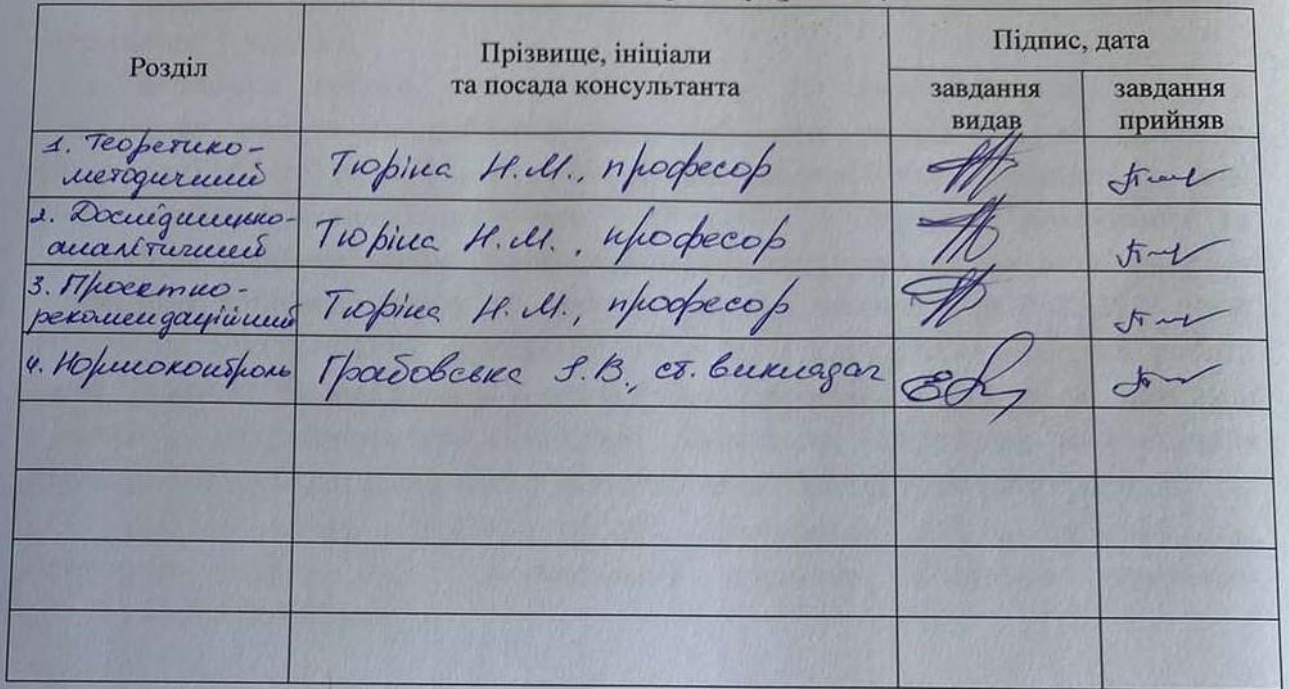 Розділ
Прізвище, ініціали
та посада консультанта
Підпис, дата
завдання
видав
завдання
прийняв
1. Теоретико-
методичний
Тюріна Н.М., професор
2. Дослідницько-
аналітичний
Тюріна Н.М., професор
3. Проектно-
рекомендаційний
Тюріна Н.М., професор
4. Нормоконтроль
Грабовська І.В., ст. викладач